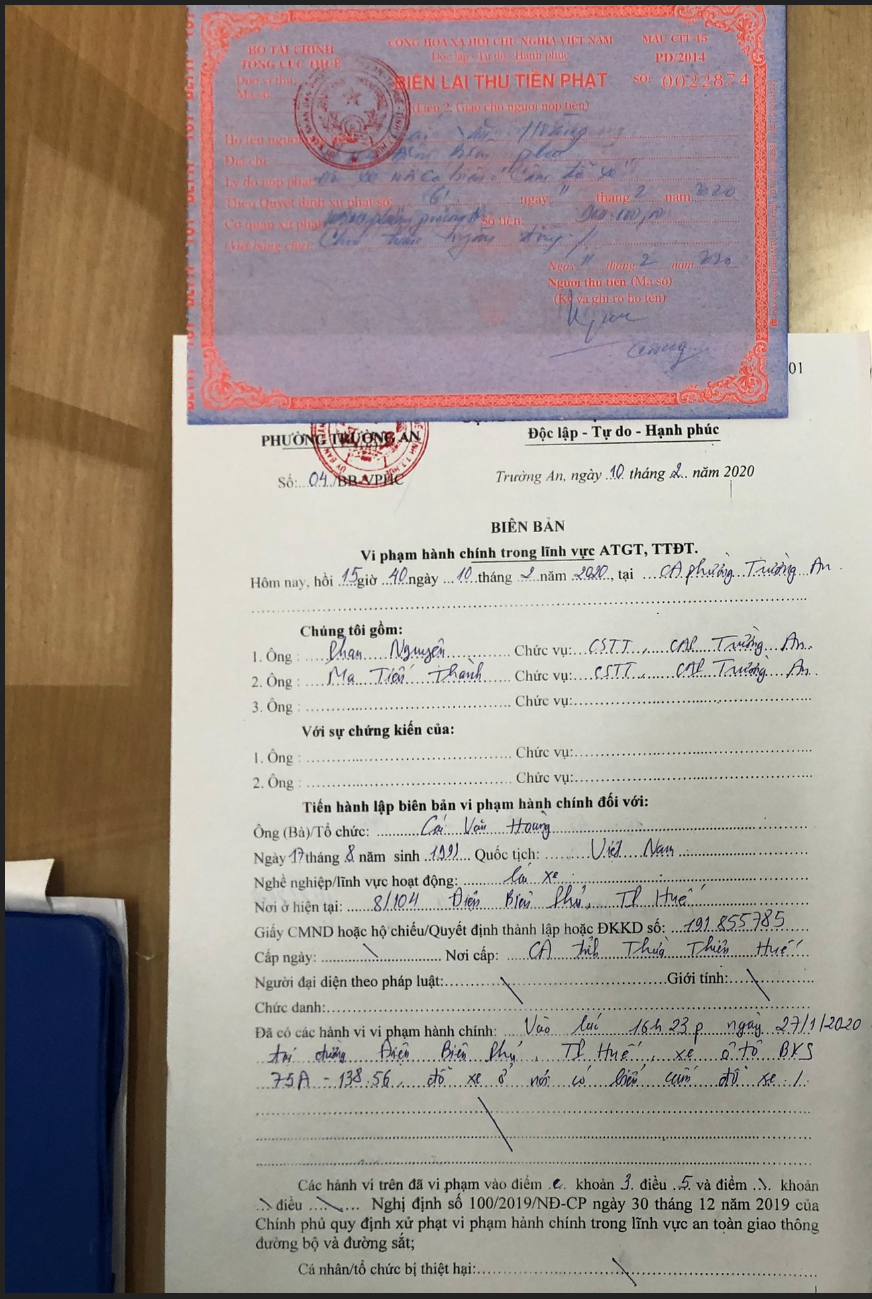 BỘ TÀI CHÍNH
TỔNG CỤC THUẾ
CỘNG HÒA XÃ HỘI CHỦ NGHĨA VIỆT NAM
Độc lập - Tự do - Hạnh phúc
MẪU CTT 45
PD/2014
BIÊN LAI THU TIỀN PHẠT
SỐ: 0022874
(Liên 2: Giao cho người nộp tiền)
Họ tên người
Địa chỉ: Điện Biên phủ
Lý do nộp phạt: "cấm đỗ xe"
Theo Quyết định xử phạt số 6 ngày 11 tháng 2 năm 2020
Cơ quan xử phạt Số tiền
Ngày 11 tháng 2 năm 2020
Người thu tiền (Mã số)
(Ký và ghi rõ họ tên)
01
PHƯỜNG TRƯỜNG AN
Độc lập - Tự do - Hạnh phúc
Số: 04./BB-VPHC
Trường An, ngày 10 tháng 2 năm 2020
BIÊN BẢN
Vi phạm hành chính trong lĩnh vực ATGT, TTĐT.
Hôm nay, hồi 15 giờ 40 ngày 10 tháng 2 năm 2020, tại CA phường Trường An.
Chúng tôi gồm:
1. Ông : Phan Nguyên Chức vụ: CSTT, CAP Trường An.
2. Ông : Ma Tiến Thành Chức vụ: CSTT, CAP Trường An.
3. Ông : Chức vụ:
Với sự chứng kiến của:
1. Ông : Chức vụ:
2. Ông : Chức vụ:
Tiến hành lập biên bản vi phạm hành chính đối với:
Ông (Bà)/Tổ chức: Cái Văn Hoàng
Ngày 17 tháng 8 năm sinh 1991 Quốc tịch: Việt Nam
Nghề nghiệp/lĩnh vực hoạt động: lái xe
Nơi ở hiện tại: 8/104 Điện Biên Phủ, TP Huế
Giấy CMND hoặc hộ chiếu/Quyết định thành lập hoặc ĐKKD số: 191 855785
Cấp ngày: Nơi cấp: CA tỉnh Thừa Thiên Huế
Người đại diện theo pháp luật: Giới tính:
Chức danh:
Đã có các hành vi vi phạm hành chính: Vào lúc 16h 23p ngày 27/1/2020
tại đường Điện Biên Phủ, TP Huế, xe ô tô BKS
75A - 138.56, đỗ xe ở nơi có biển cấm đỗ xe /.
Các hành vi trên đã vi phạm vào điểm e khoản 3 điều 5 và điểm khoản
điều Nghị định số 100/2019/NĐ-CP ngày 30 tháng 12 năm 2019 của
Chính phủ quy định xử phạt vi phạm hành chính trong lĩnh vực an toàn giao thông
đường bộ và đường sắt;
Cá nhân/tổ chức bị thiệt hại: